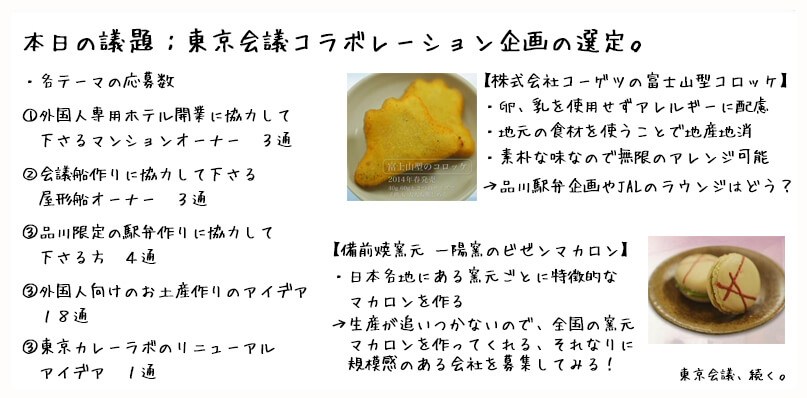 本日の議題；東京会議コラボレーション企画の選定。
・各テーマの応募数
①外国人専用ホテル開業に協力して
下さるマンションオーナー　３通
②会議船作りに協力して下さる
屋形船オーナー　３通
③品川限定の駅弁作りに協力して
下さる方　４通
③外国人向けのお土産作りのアイデア
１８通
③東京カレーラボのリニューアル
アイデア　１通
【株式会社コーゲツの富士山型コロッケ】
・卵、乳を使用せずアレルギーに配慮
・地元の食材を使うことで地産地消
・素朴な味なので無限のアレンジ可能
→品川駅弁企画やJALのラウンジはどう？
富士山型のコロッケ
2014年春発売
【備前焼窯元 一陽窯のビゼンマカロン】
・日本各地にある窯元ごとに特徴的な
マカロンを作る
→生産が追いつかないので、全国の窯元
マカロンを作ってくれる、それなりに
規模感のある会社を募集してみる！
東京会議、続く。